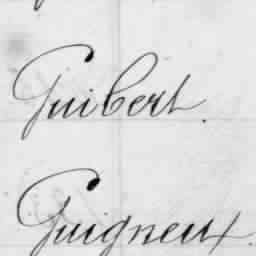 Guibert.
Guigneux.